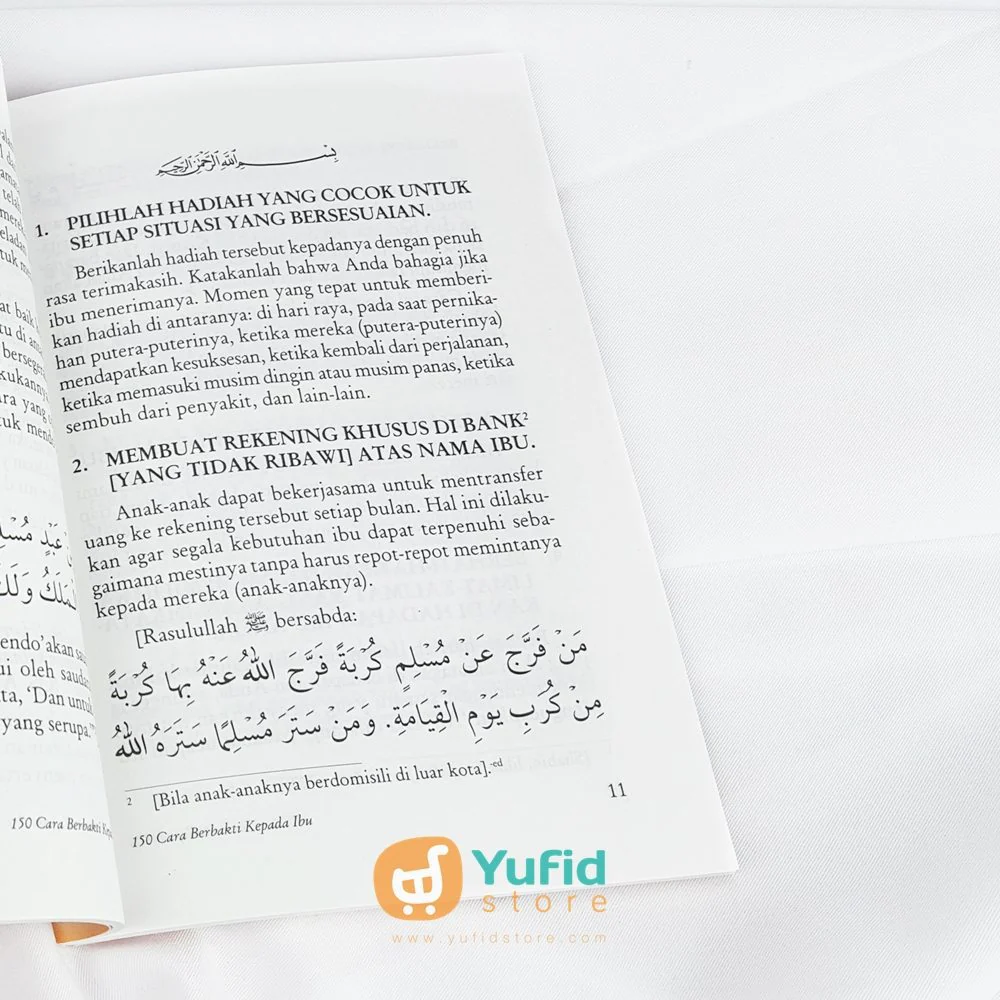 بِسْمِ اللَّهِ الرَّحْمَٰنِ الرَّحِيمِ
1. PILIHLAH HADIAH YANG COCOK UNTUK
SETIAP SITUASI YANG BERSESUAIAN.
Berikanlah hadiah tersebut kepadanya dengan penuh
rasa terimakasih. Katakanlah bahwa Anda bahagia jika
ibu menerimanya. Momen yang tepat untuk memberi-
kan hadiah di antaranya: di hari raya, pada saat pernika-
han putera-puterinya, ketika mereka (putera-puterinya)
mendapatkan kesuksesan, ketika kembali dari perjalanan,
ketika memasuki musim dingin atau musim panas, ketika
sembuh dari penyakit, dan lain-lain.
2. MEMBUAT REKENING KHUSUS DI BANK²
[YANG TIDAK RIBAWI] ATAS NAMA IBU.
Anak-anak dapat bekerjasama untuk mentransfer
uang ke rekening tersebut setiap bulan. Hal ini dilaku-
kan agar segala kebutuhan ibu dapat terpenuhi seba-
gaimana mestinya tanpa harus repot-repot memintanya
kepada mereka (anak-anaknya).
[Rasulullah ﷺ bersabda:
مَنْ فَرَّجَ عَنْ مُسْلِمٍ كُرْبَةً فَرَّجَ اللهُ عَنْهُ بِهَا كُرْبَةً
مِنْ كُرَبِ يَوْمِ الْقِيَامَةِ. وَمَنْ سَتَرَ مُسْلِمًا سَتَرَهُ اللهُ
² [Bila anak-anaknya berdomisili di luar kota].-ed
11
150 Cara Berbakti Kepada Ibu
150 Cara Berbakti
Yufid
store
www.yufidstore.com